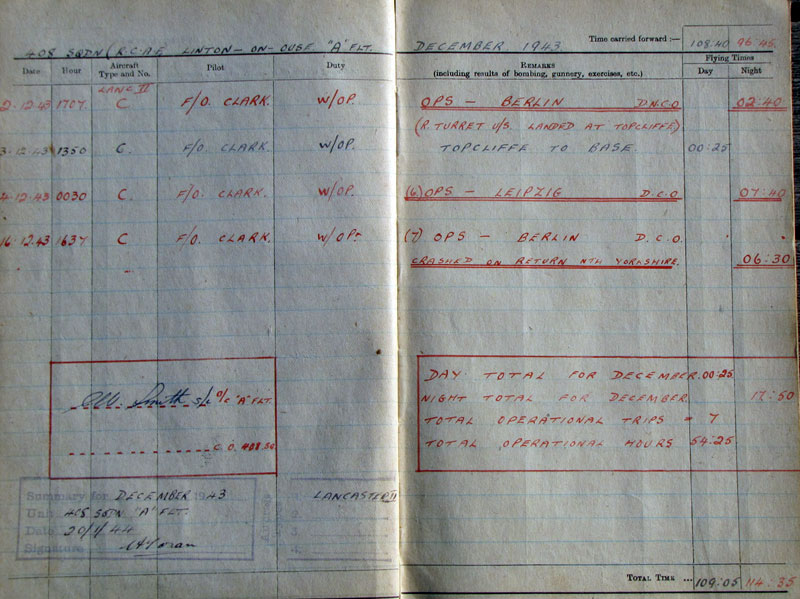 408 SQDN (R.C.A.F. LINTON-ON-OUSE "A" FLT.
Date Hour Aircraft Type and No. Pilot Duty
LANC II
2.12.43 1707 C. F/O. CLARK. W/OP.
3.12.43 1350 C. F/O. CLARK. W/OP.
4.12.43 0030 C. F/O. CLARK. W/OP.
16.12.43 1637 C F/O. CLARK. W/OP.
S/L O/C "A" FLT.
C.O. 408 SQ
Summary for DECEMBER 1943
Unit 408 SQDN "A" FLT.
Date 20/1/44
Signature
LANCASTER II
2.
3.
4.
DECEMBER 1943 Time carried forward :— 108:40 96:45
REMARKS
(including results of bombing, gunnery, exercises, etc.)
Flying Times
Day Night
OPS — BERLIN D.N.C.O 02:40
(R. TURRET U/S. LANDED AT TOPCLIFFE)
TOPCLIFFE TO BASE. 00:25
(6) OPS — LEIPZIG D.C.O 07:40
(7) OPS — BERLIN D.C.O.
CRASHED ON RETURN NTH YORKSHIRE. 06:30
DAY TOTAL FOR DECEMBER. 00:25
NIGHT TOTAL FOR DECEMBER 17:50
TOTAL OPERATIONAL TRIPS = 7
TOTAL OPERATIONAL HOURS 54:25
TOTAL TIME ... 109:05 114:35